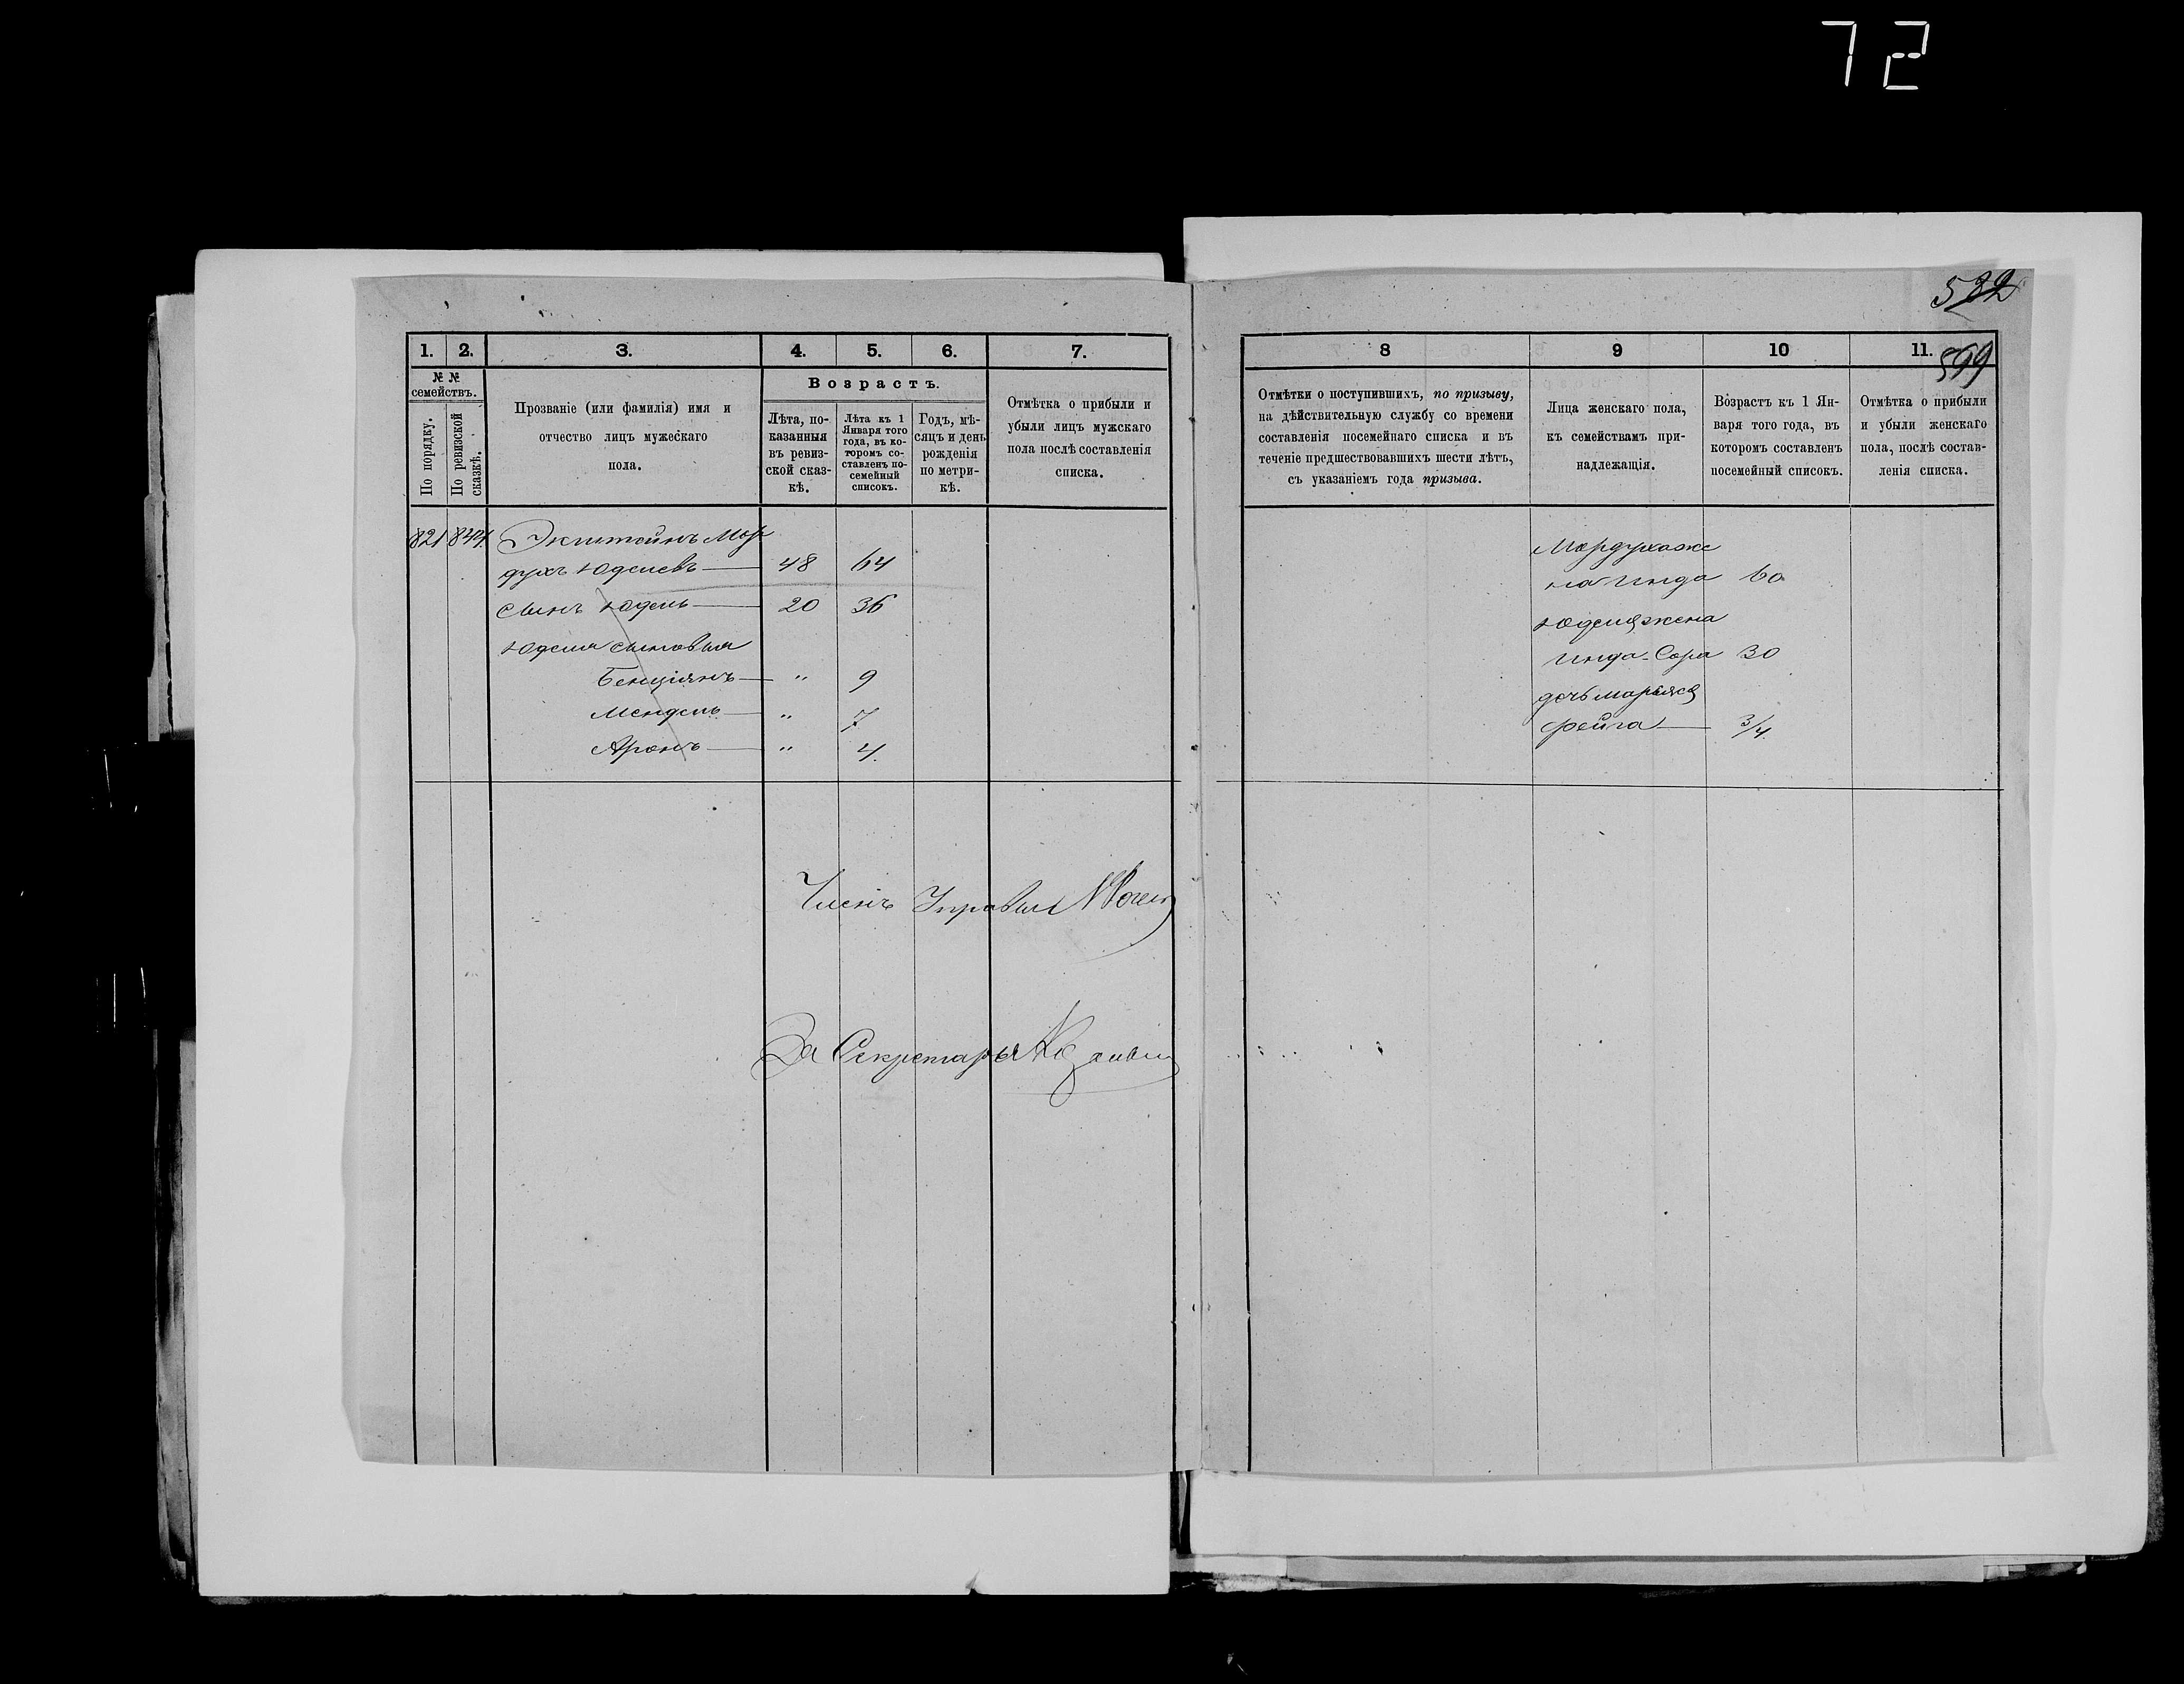 72
532
599
1. 2. 3. 4. 5. 6. 7.
№ №
семействъ.
По порядку.
По ревизской
сказкѣ.
Прозваніе (или фамилія) имя и
отчество лицъ мужескаго
пола.
Возрастъ.
Лѣта, по-
казанныя
въ ревиз-
ской сказ-
кѣ.
Лѣта къ 1
Января того
года, въ ко-
торомъ со-
ставленъ по-
семейный
списокъ.
Годъ, мѣ-
сяцъ и день
рожденія
по метри-
кѣ.
Отмѣтка о прибыли и
убыли лицъ мужскаго
пола послѣ составленія
списка.
821 844. Экштейнъ Мор
духъ Юделевъ — 48 64
сынъ Юдель — 20 36
Юделя сыновья
Бенціянъ — " 9
Мендель — " 7
Аронъ — " 4.
Членъ Управы
За Секретаря
8 9 10 11.
Отмѣтки о поступившихъ, по призыву,
на дѣйствительную службу со времени
составленія посемейнаго списка и въ
теченіе предшествовавшихъ шести лѣтъ,
съ указаніемъ года призыва.
Лица женскаго пола,
къ семействамъ при-
надлежащія.
Возрастъ къ 1 Ян-
варя того года, въ
которомъ составленъ
посемейный списокъ.
Отмѣтка о прибыли
и убыли женскаго
пола, послѣ состав-
ленія списка.
Мордуха же
на Инда 60
Юделя жена
Инда-Сора 30
дочь Марьяся
Фейга — 3/4.